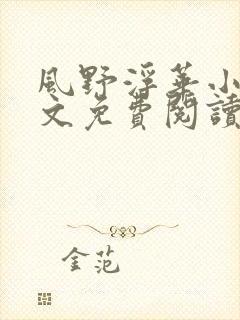 風野浮華小
文免費閱讀
金范